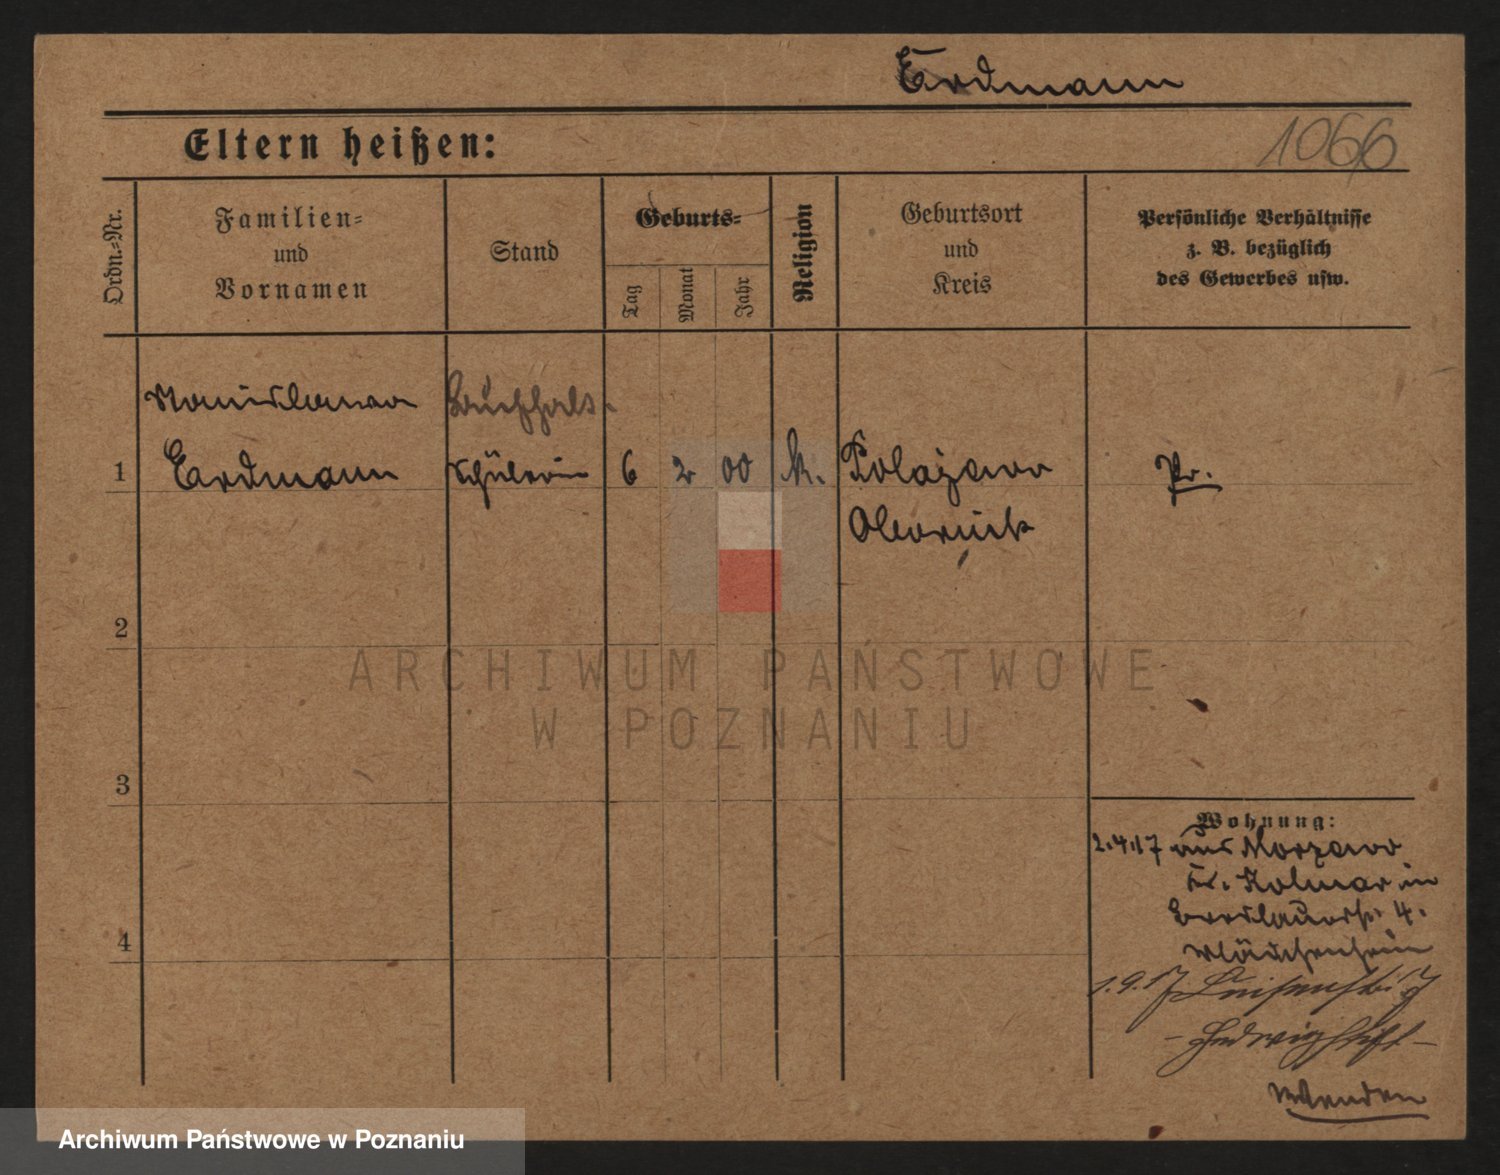 Erdmann
Eltern heißen:
1066
Ordn.-Nr.
Familien-
und
Vornamen
Stand
Geburts-
Tag
Monat
Jahr
Religion
Geburtsort
und
Kreis
Persönliche Verhältnisse
z. B. bezüglich
des Gewerbes usw.
Stanislawa
Buchhalt.
1
Erdmann
Schülerin
6
2
00
k.
Polajewo
Pr.
Obornick
2
ARCHIWUM PAŃSTWOWE
W POZNANIU
3
Wohnung:
2.4.17 aus Morzewo
Kr. Kolmar in
Breslauerstr. 4.
Mädchenheim
4
1.9.17 Luisenstr.
- Hedwigstift -
Wenden
Archiwum Państwowe w Poznaniu